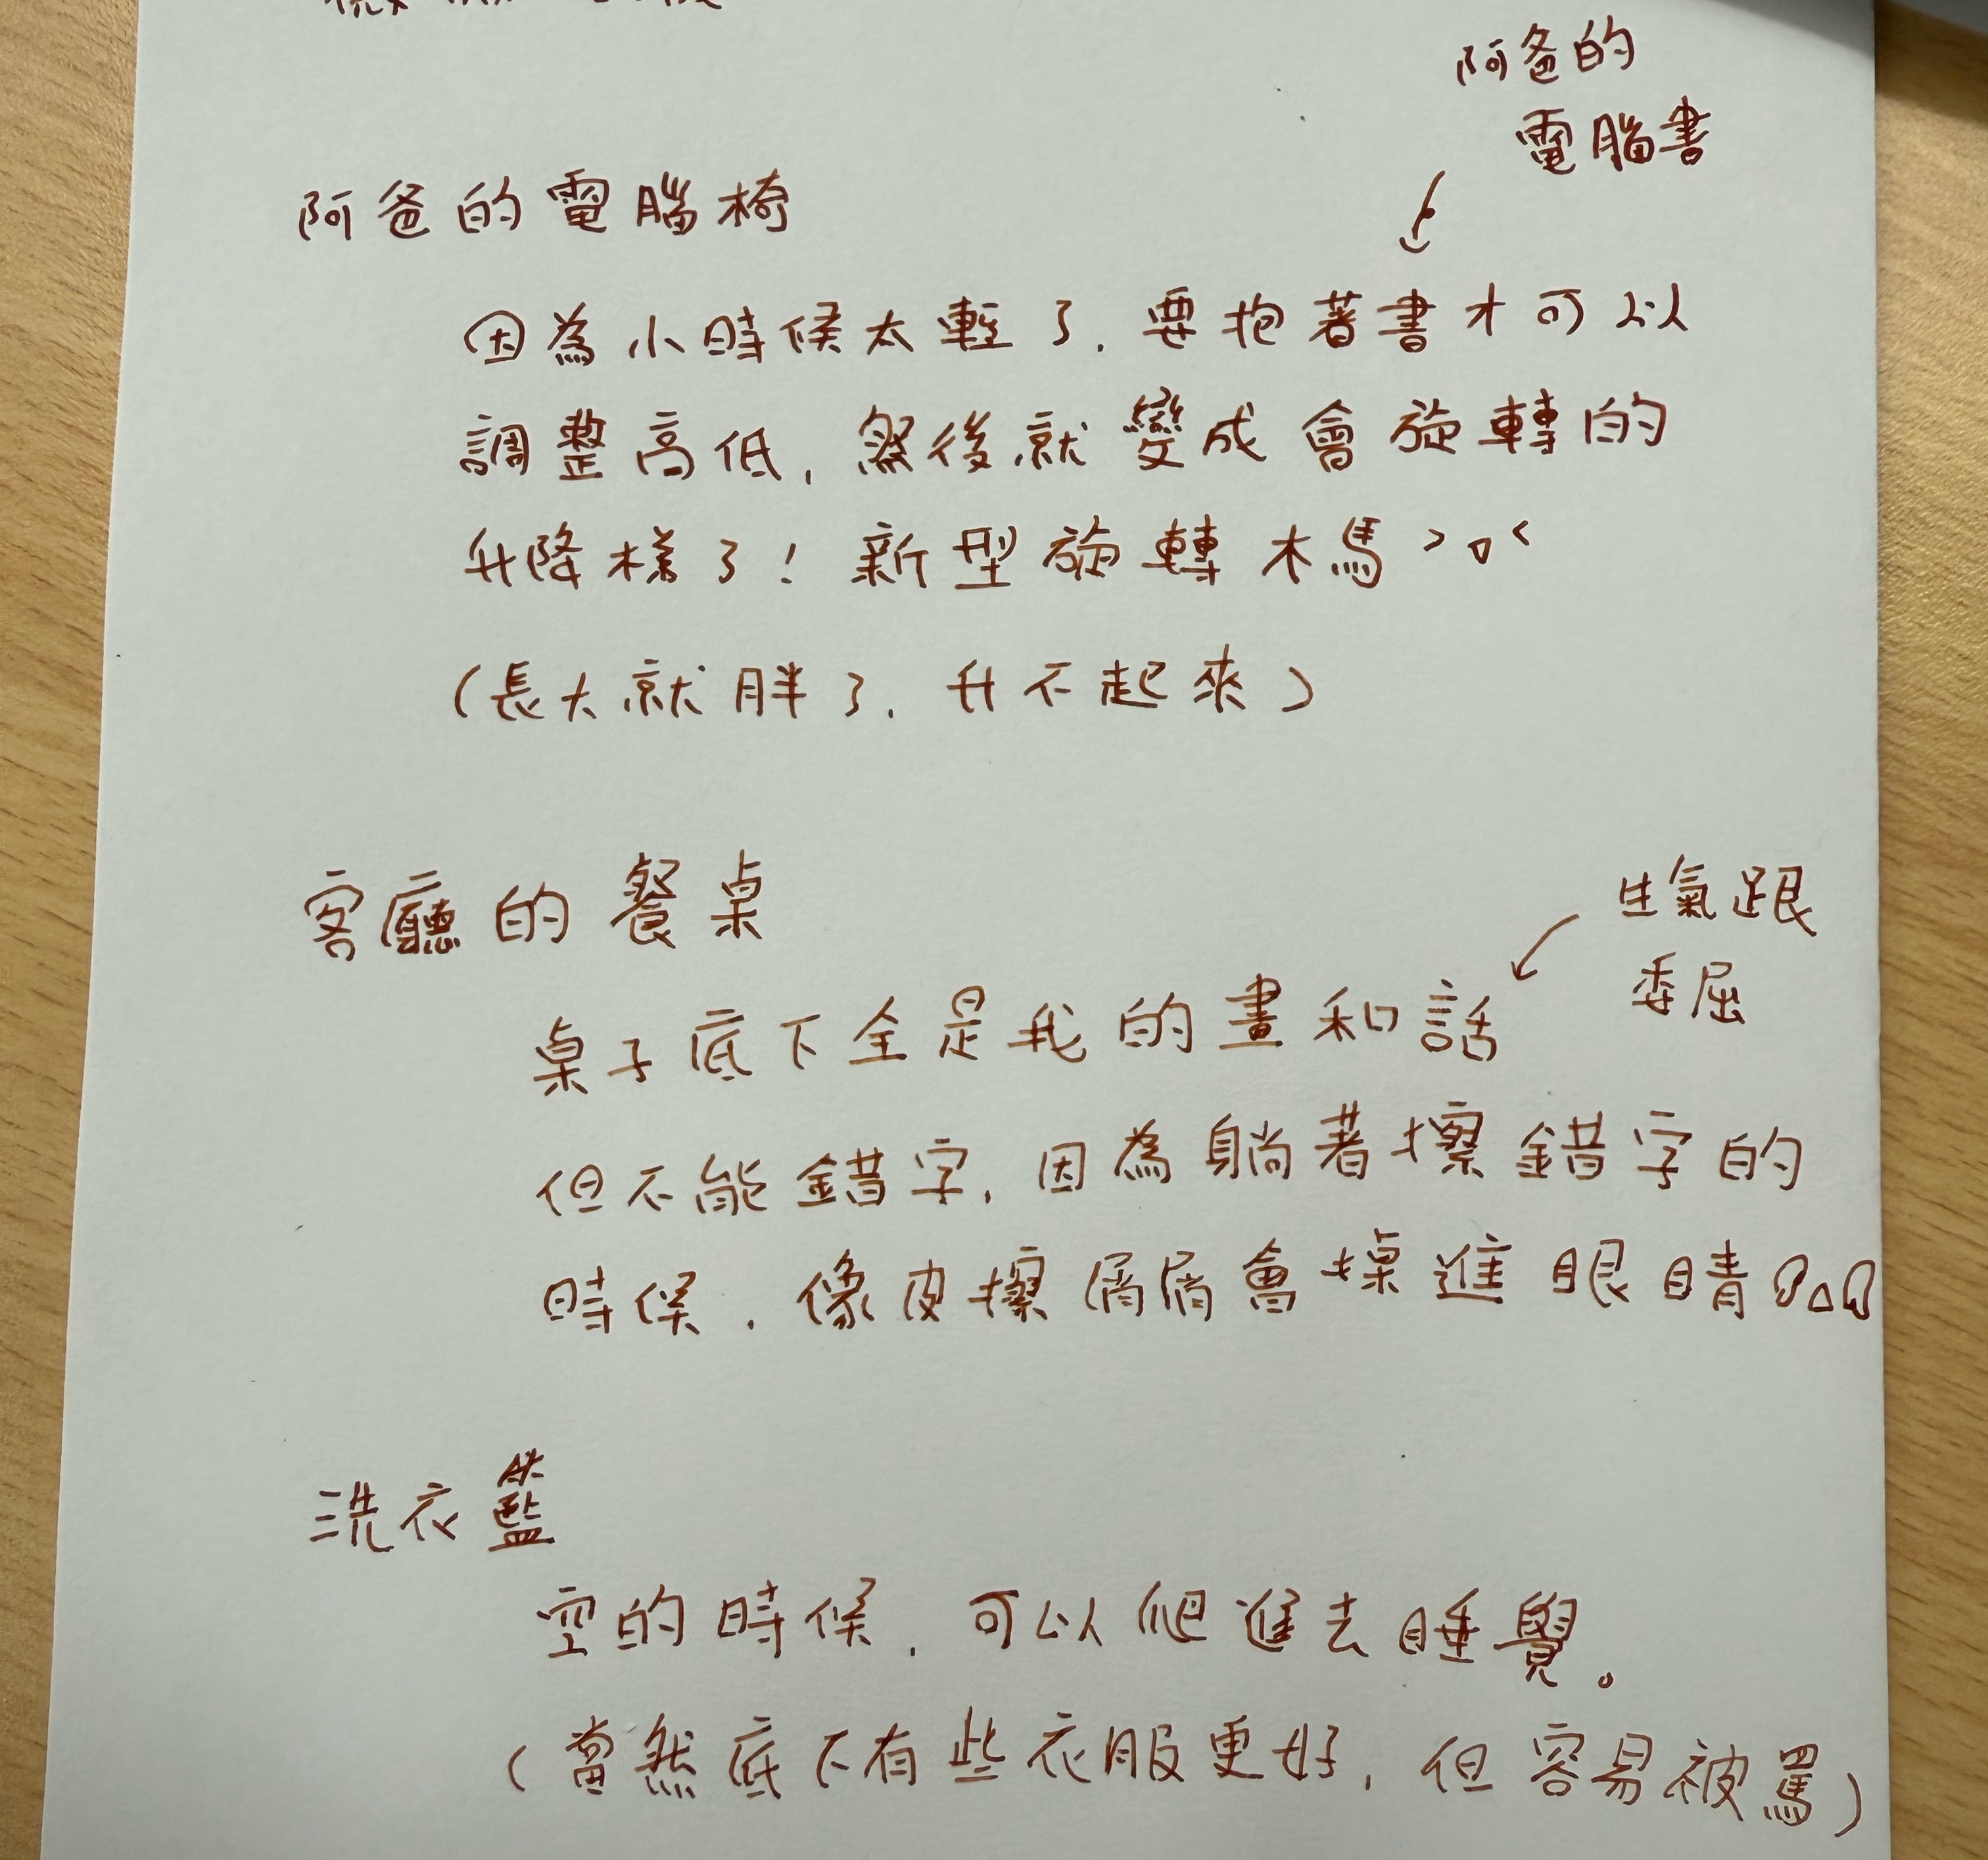 阿爸的
電腦書
阿爸的電腦椅
因為小時候太輕了,要抱著書才可以
調整高低,然後就變成會旋轉的
升降樣了!新型旋轉木馬>口<
(長大就胖了,升不起來)
客廳的餐桌
生氣跟
委屈
桌子底下全是我的畫和話
但不能錯字,因為躺著擦錯字的
時候,像皮擦屑屑會掉進眼睛
洗衣籃
空的時候,可以爬進去睡覺。
(當然底下有些衣服更好,但容易被罵)